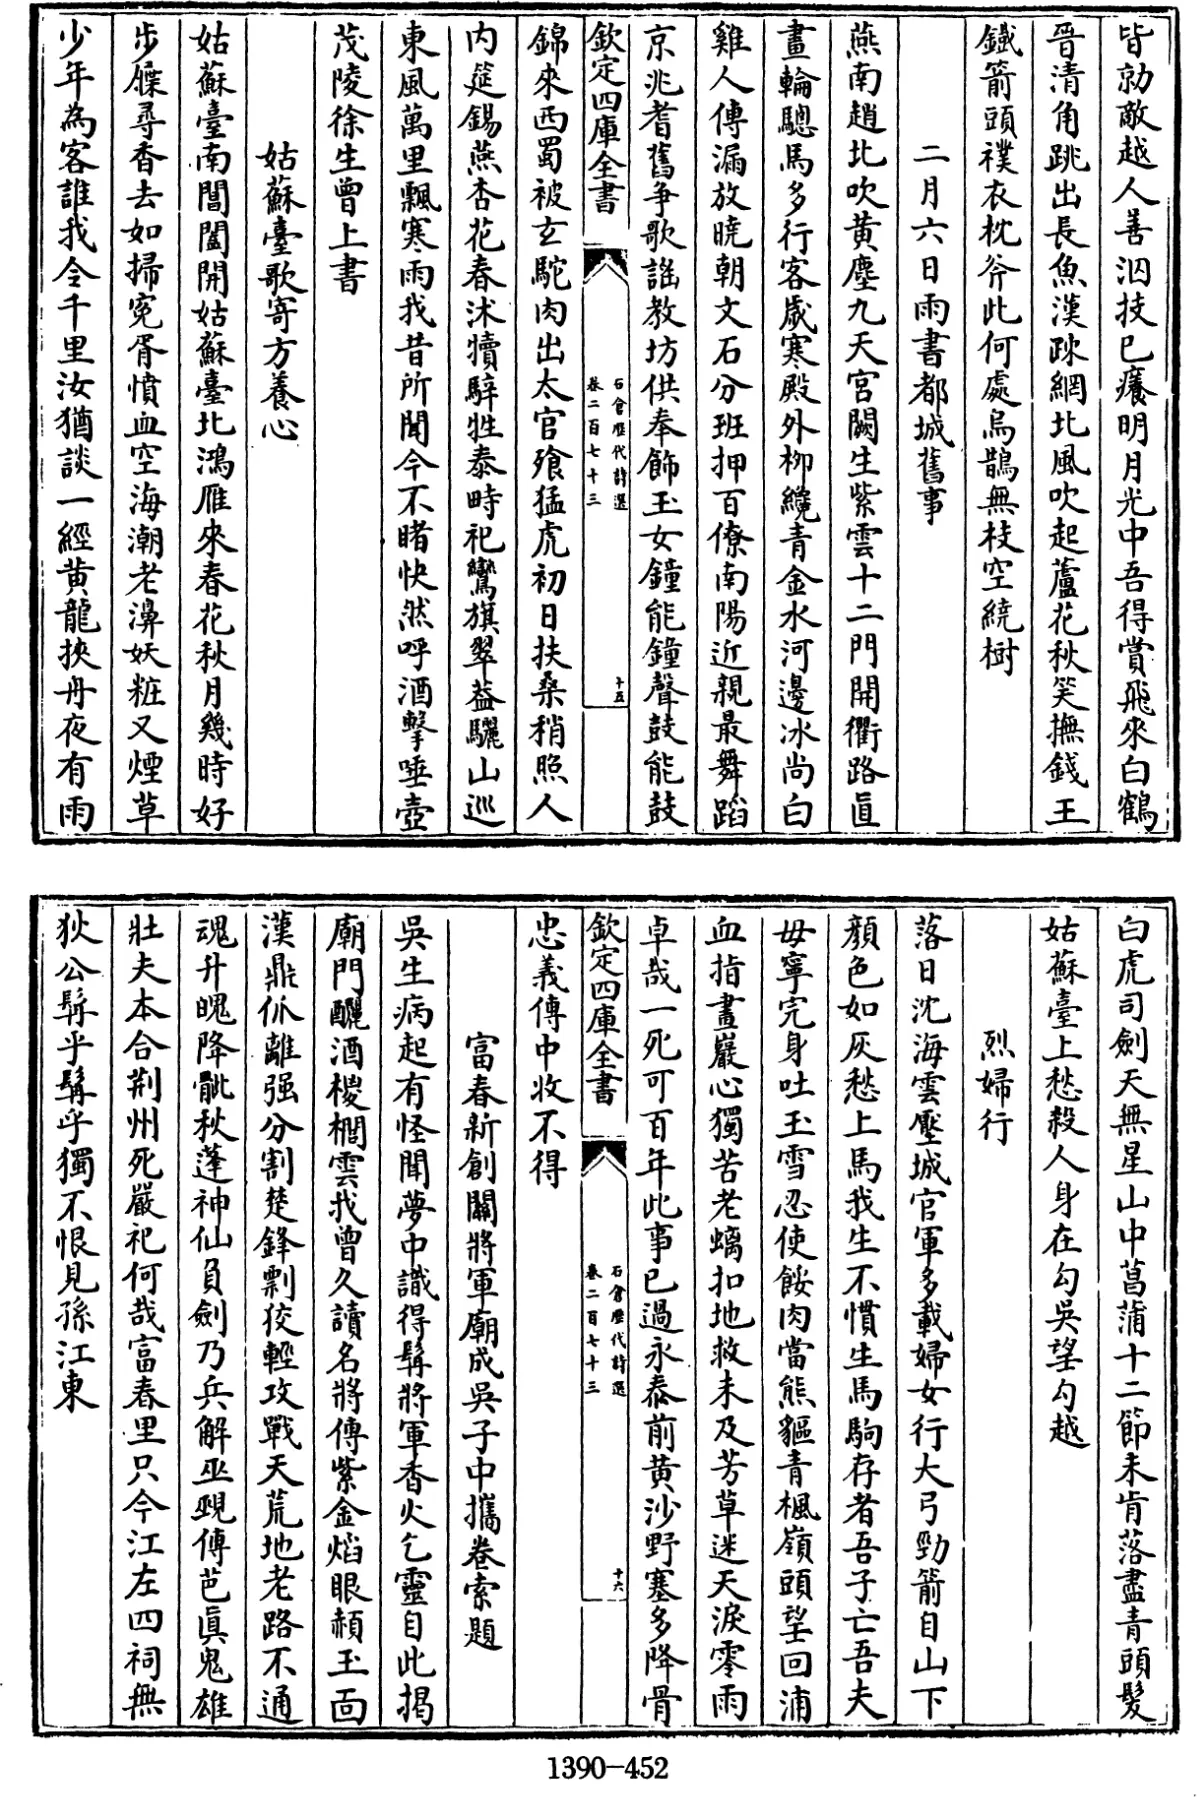 皆勍敵越人善泅技已癢明月光中吾得賞飛來白鶴
晉清角跳出長魚漢疎網北風吹起蘆花秋笑撫錢王
鐡箭頭襆衣枕斧此何處烏鵲無枝空繞樹
二月六日雨書都城舊事
燕南趙北吹黄塵九天宫闕生紫雲十二門開衢路直
畫輪驄馬多行客歲寒殿外栁纔青金水河邊冰尚白
雞人傳漏放曉朝文石分班押百僚南陽近親最舞蹈
京兆耆舊爭歌謡教坊供奉飾玉女鐘能鐘聲鼓能鼓
欽定四庫全書
石倉歷代詩選
卷二百七十三
十五
錦來西蜀被玄駝肉出太官飱猛虎初日扶桑稍照人
内筵錫燕杏花春沭犢騂牲泰畤祀鸞旗翠葢驪山巡
東風萬里飄寒雨我昔所聞今不睹快然呼酒擊唾壺
茂陵徐生曾上書
姑蘇臺歌寄方養心
姑蘇臺南閶闔開姑蘇臺北鴻雁來春花秋月幾時好
步屧尋香去如掃寃胥憤血空海潮老濞妖粧又煙草
少年為客誰我令千里汝猶談一經黄龍挾舟夜有雨
白虎司劍天無星山中菖蒲十二節未肯落盡青頭髮
姑蘇臺上愁殺人身在勾吳望勾越
烈婦行
落日沈海雲壓城官軍多載婦女行大弓勁箭自山下
顔色如灰愁上馬我生不慣生馬駒存者吾子亡吾夫
毋寧完身吐玉雪忍使餧肉當熊貙青楓嶺頭望回浦
血指畫巖心獨苦老螭扣地救未及芳草迷天淚零雨
卓哉一死可百年此事已過永泰前黄沙野塞多降骨
欽定四庫全書
石倉歷代詩選
卷二百七十三
十六
忠義傳中收不得
富春新創關將軍廟成吳子中攜卷索題
吳生病起有怪聞夢中識得髯將軍香火乞靈自此揭
廟門釃酒椶櫚雲我曾久讀名將傳紫金熖眼頳玉面
漢鼎仳離强分割楚鋒剽狡輕攻戰天荒地老路不通
魂升魄降骴秋蓬神仙負劍乃兵解巫覡傳芭眞鬼雄
壯夫本合荆州死嚴祀何哉富春里只今江左四祠無
狄公髯乎髯乎獨不恨見孫江東
1390-452